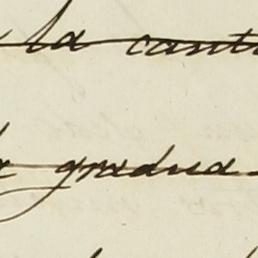 la cant
gradua